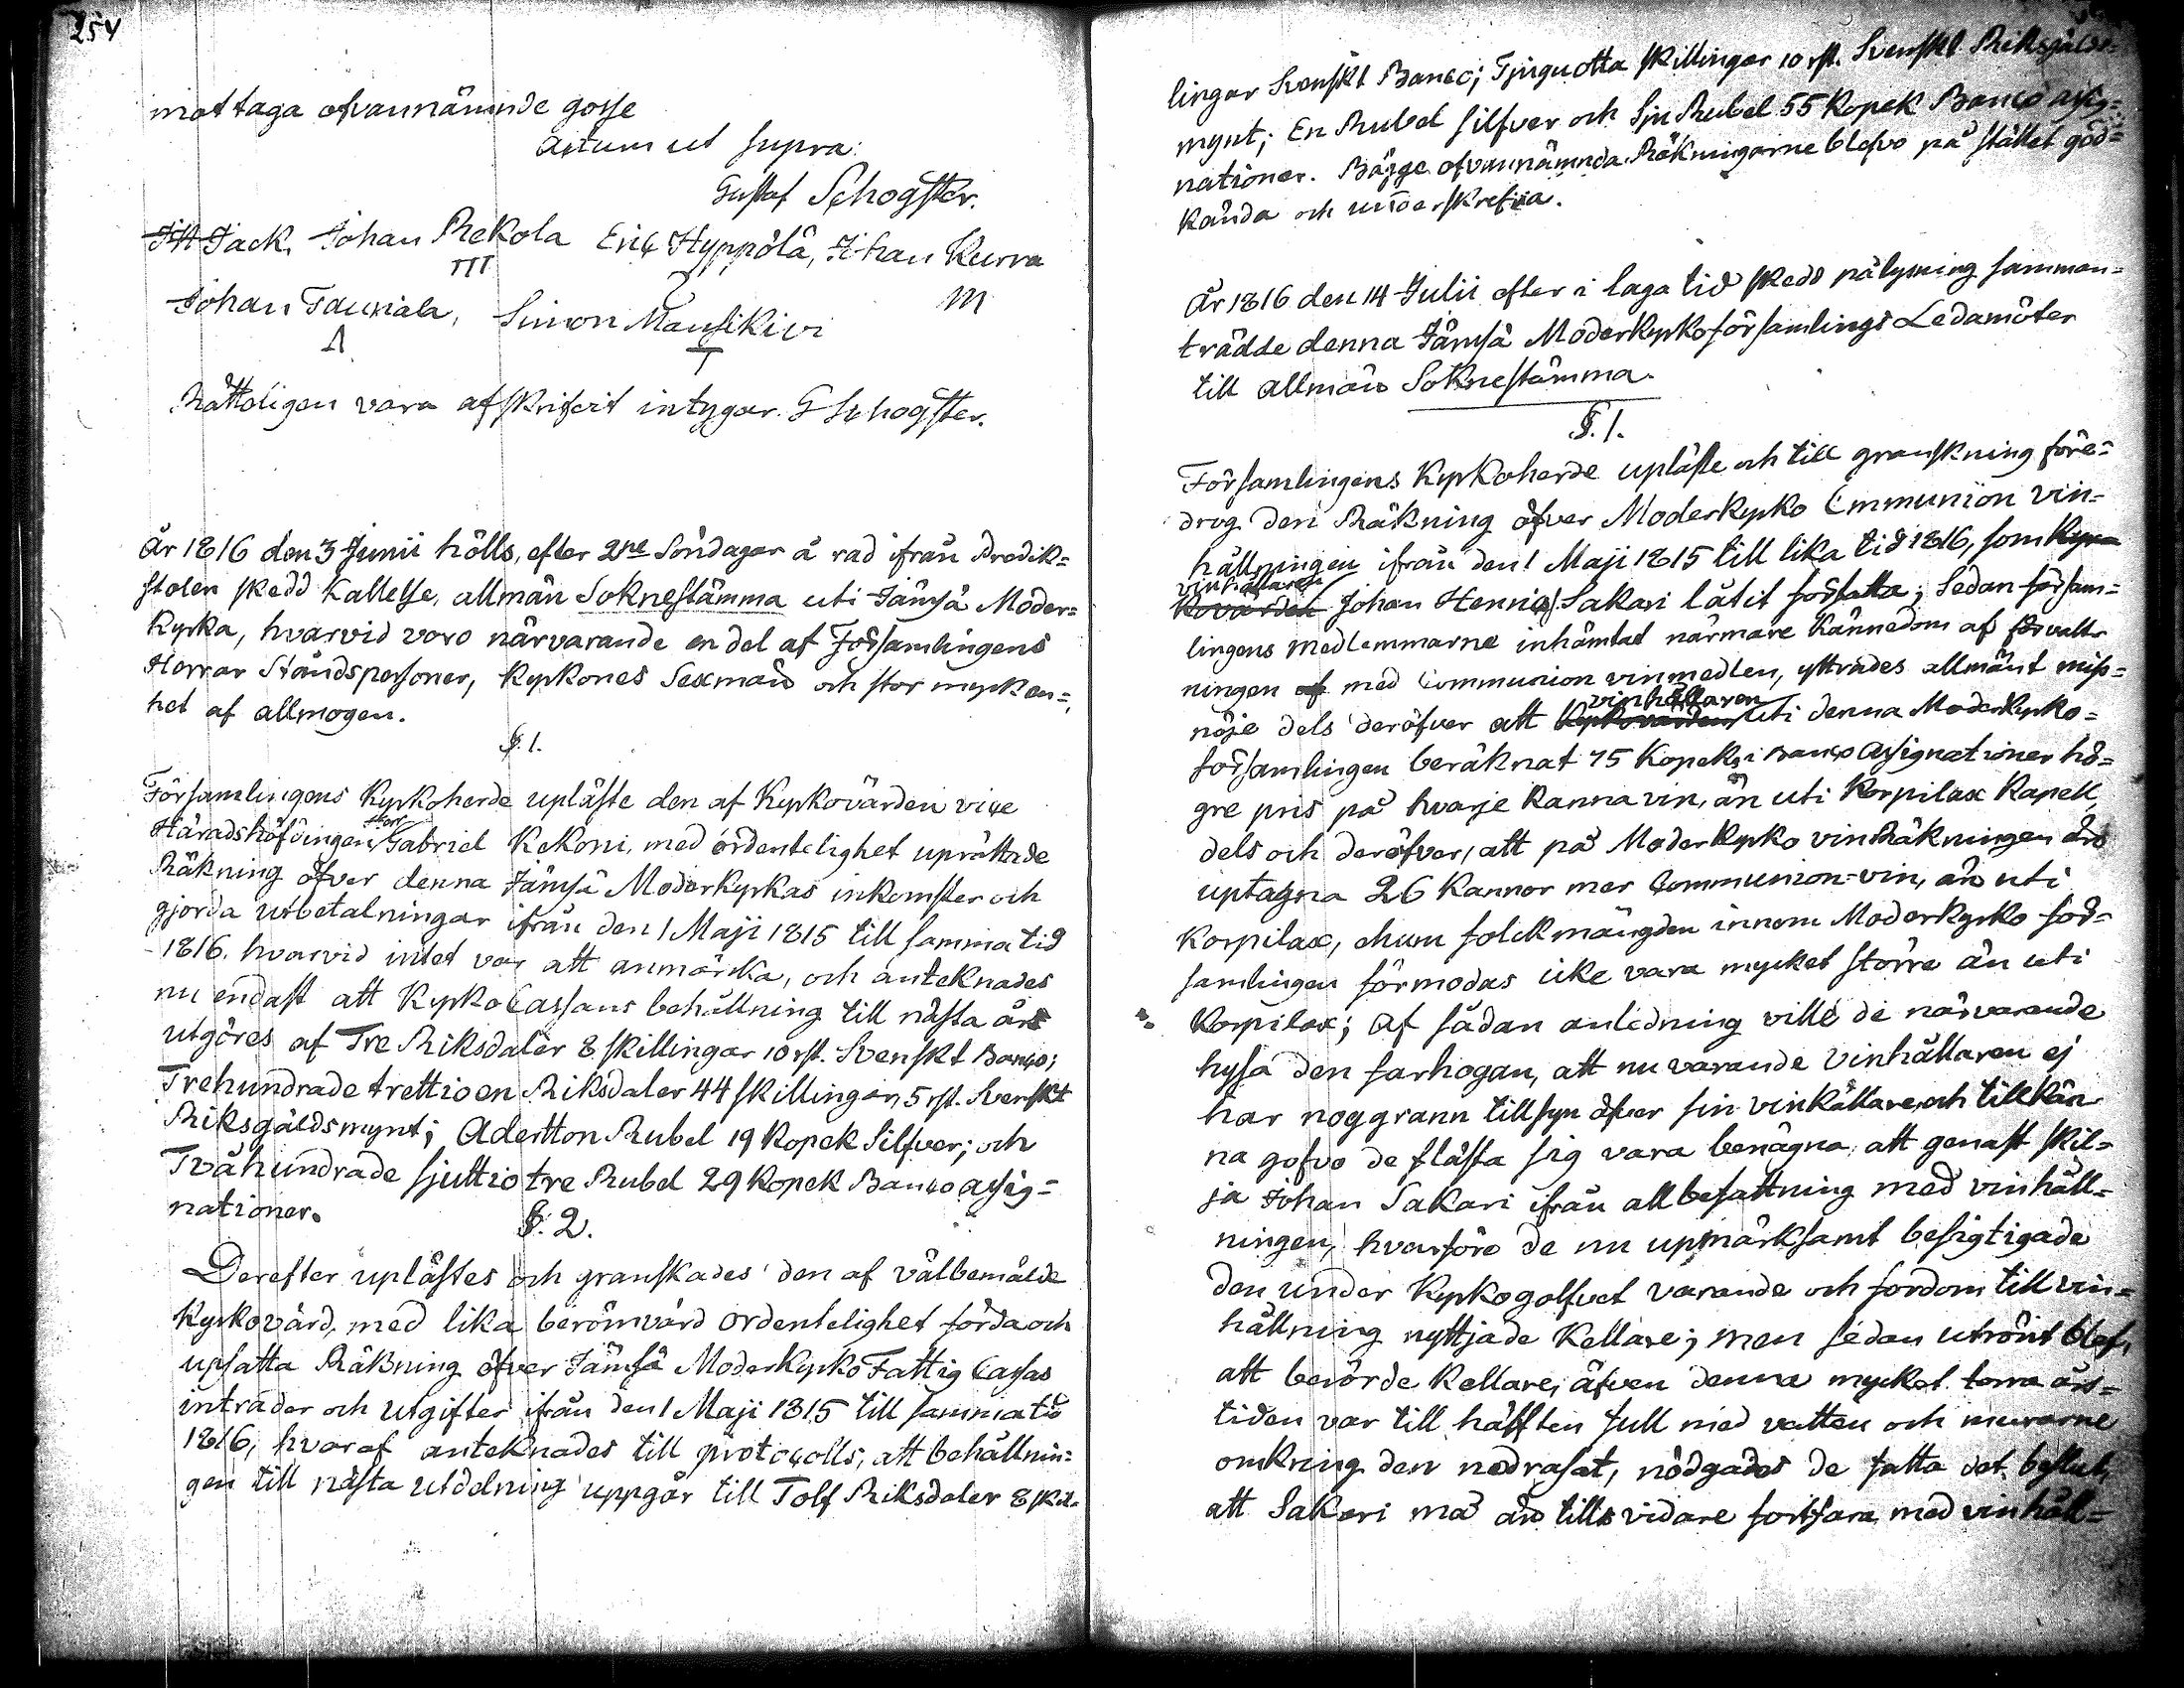 254
mottaga ofvannämnde gosse
Actum ut supra:
Gustaf Schogster.
Jack, Johan Rekola Eric Hyppölä, Johan Kurra
Johan Tauriala, Simon Mansikivi
Rätteligen vara afskrifvit intygar. G Schogster.
År 1816 den 3 Junii hölls, efter 2ne Söndagar å rad ifrån Predik=
stolen skedd Kallelse, allmän Soknestämma uti Jämsä Moder=
Kyrka, hvarvid voro närvarande en del af Församlingens
Herrar Ståndspersoner, Kyrkones Sexmän och stor mycken=
het af allmogen.
§. 1.
Församlingens Kyrkoherde upläste den af Kyrkovärden vice
Häradshöfdingen Herr Gabriel Kekoni, med ordentelighet uprättade
Räkning öfver denna Jämsä Moderkyrkas inkomster och
gjorda utbetalningar ifrån den 1 Maji 1815 till samma tid
1816. hvarvid intet var att anmärka, och anteknades
nu endast att KyrkoCassans behållning till nästa år
utgöres af Tre Riksdaler 8 skillingar 10 rst. Svenskt Banco;
Trehundrade trettioen Riksdaler 44 skillingar, 5 rst. Svenskt
Riksgäldsmynt; Adertton Rubel 19 Kopek Silfver; och
Tvåhundrade sjuttiotre Rubel 29 Kopek Banco assig=
nationer.
§. 2.
Derefter uplästes och granskades den af välbemälde
Kyrkovärd, med lika berömvärd ordentelighet förda och
upsatta Räkning öfver Jämsä Moderkyrko Fattig Cassas
inträder och utgifter ifrån den 1 Maji 1815 till samma tid
1816, hvaraf anteknades till protocolls, att behållnin=
gen till nästa utdelning uppgår till Tolf Riksdaler 8 skil=
lingar Svenskt Banco; Tjuguotta skillingar 10 rst. Svenskt Riksgälds=
mynt; En Rubel silfver och Sju Rubel 55 Kopek Banco assig=
nationer. Bägge ofvannämnda Räkningarne blefvo på stället god=
kända och underskrefna.
År 1816 den 14 Julii efter i laga tid skedd pålysning samman=
trädde denna Jämsä Moderkyrkoförsamlings Ledamöter
till allmän Soknestämma.
§. 1.
Församlingens Kyrkoherde upläste och till granskning före=
drog den Räkning öfver Moderkyrko Communion vin=
hållningen ifrån den 1 Maji 1815 till lika tid 1816, som Kyr
vinhållaren
kovärden Johan Henrics Sakari låtit författa; Sedan försam=
lingens medlemmarne inhämtat närmare Kännedom af förvalt
ningen af med Communion vinmedlen, yttrades allmänt miss=
vinhållaren
nöje dels deröfver att Kyrkovärden uti denna Moderkyrko=
församlingen beräknat 75 Kopek i Banco Assignationer hö=
gre pris på hvarje Kanna vin, än uti Korpilax Kapell,
dels och deröfver, att på Moderkyrko vin Räkningen äro
uptagna 26 Kannor mer Communion=vin, än uti
Korpilax, ehuru folckmängden innom Moderkyrko för=
samlingen förmodas icke vara mycket större än uti
Korpilax; af sådan anledning ville de närvarande
hysa den farhogan, att nu varande Vinhållaren ej
har noggrann tillsyn öfver sin vinkällare, och tillkän
na gofvo de flästa sig vara benägna, att genast skil=
ja Johan Sakari ifrån all befattning med vinhåll=
ningen, hvarföre de nu upmärksamt besigtigade
den under Kyrkogolfvet varande och fordom till vin=
hållning nyttjade Kellare; men sedan utrönt blef,
att berörde Kellare, äfven denna mycket torra års=
tiden var till hälften full med vatten och murarne
omkring den nedrasat, nödgades de fatta det beslut,
att Sakari må än tills vidare fortfara med vinhåll=